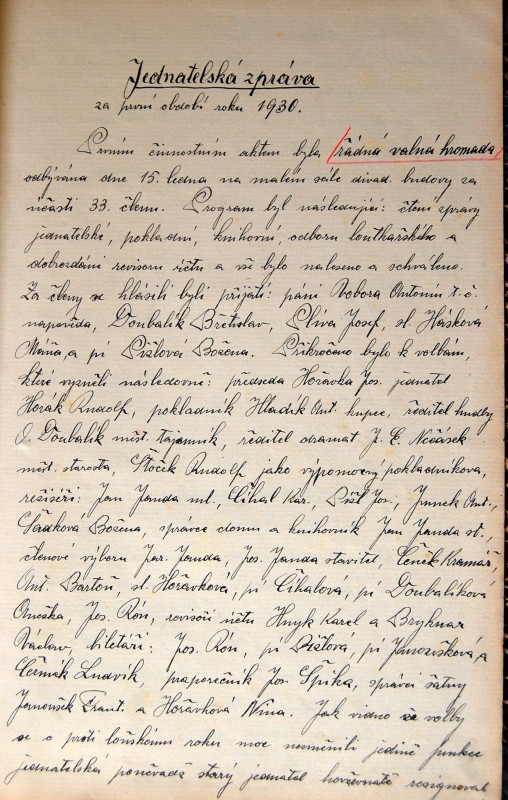 Jednatelská zpráva
za první období roku 1930.
Prvním činnostním aktem byla řádná valná hromada
odbývána dne 15. ledna na malém sále divad. budovy za
účasti 33. členů. Program byl následující: čtení zprávy
jednatelské, pokladní, knihovní, odboru loutkářského a
dobrozdání revisorů účtů a vše bylo nalezeno a schváleno.
Za členy se hlásili byli přijati: páni Bobora Antonín t. č.
napověda, Doubalík Břetislav, Plíva Josef, sl. Hašková
Máňa, a pí Pížlová Božena. Přikročeno bylo k volbám,
které vyzněli následovně: předseda Hořavka Jos. jednatel
Horák Rudolf, pokladník Hladík Ant. kupec, ředitel hudby
O. Doubalík měst. tajemník, ředitel dramat J. E. Nečásek
měst. starosta, Stoček Rudolf jako výpomocný pokladníkova,
režiséři: Jan Janda ml., Cihal Kar., Pížl Jos., Junek Ant.,
Sádkova Božena, správce domu a knihovník Jan Janda st.,
členové výboru Jar. Janda, Jos. Janda stavitel, Čeněk Kramář,
Ant. Bartoň, sl. Hořavkova, pí Cihalová, pí Doubalíková
Anežka, Jos. Rón, revisoři účtů Hnyk Karel a Brychnar
Václav, biletáři: Jos. Rón, pí Pížlová, pí Janoušková, a
Čermák Ludvík, praporečník Jos. Špika, správci šatny
Janoušek Frant. a Hořavkova Nina. Jak vidno ze volby
se o proti loňskému roku moc nezměnili jedině funkce
jednatelská poněvadž starý jednatel resignoval